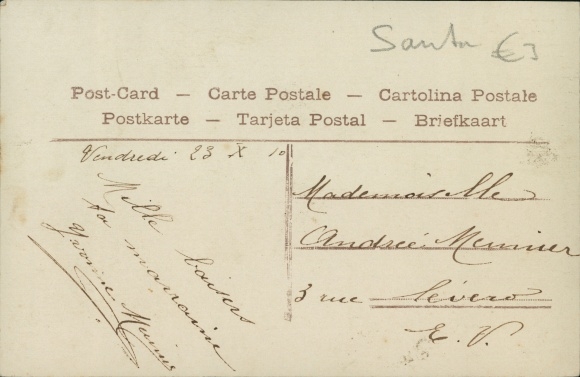 Santa €3
Post-Card — Carte Postale — Cartolina Postale
Postkarte — Tarjeta Postal — Briefkaart
Vendredi 23 X 10
Mille baisers
ta marraine
Yvonne
Mademoiselle
Andrée Meunier
3 rue Sévero
E. V.